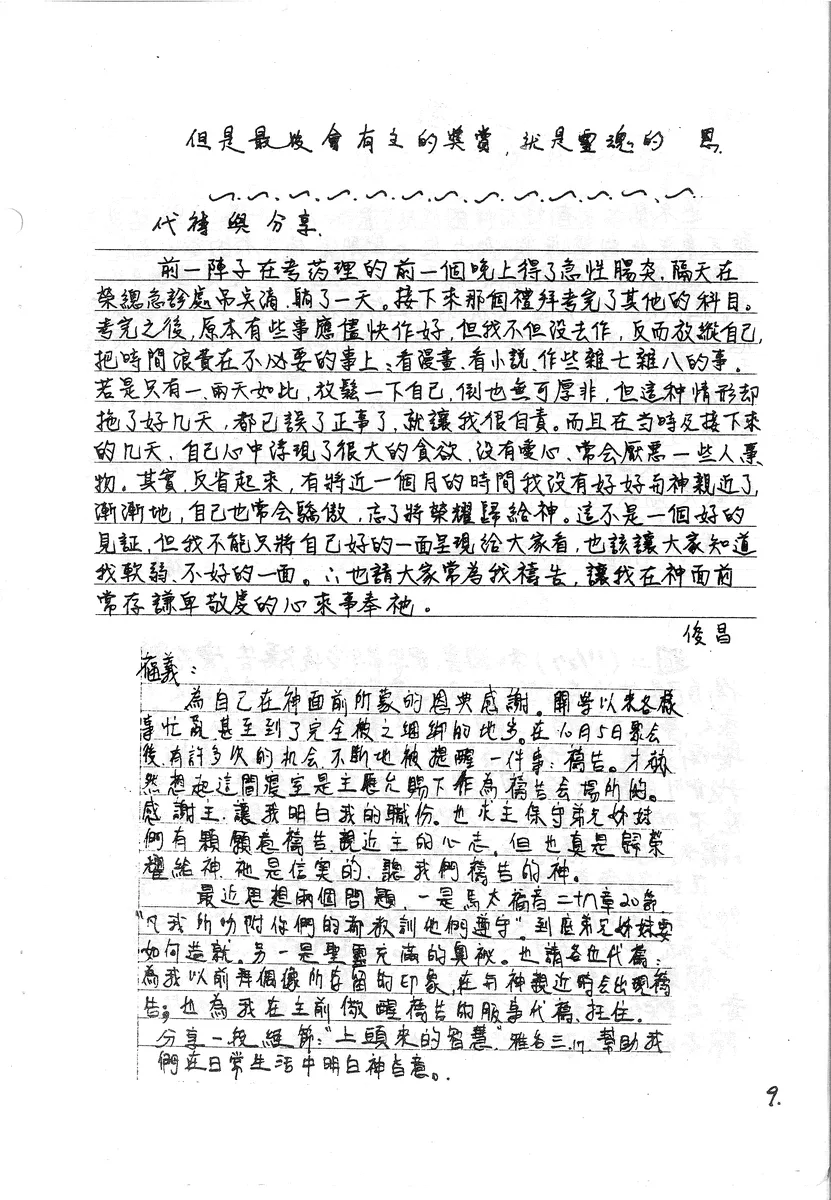 但是最後會有主的獎賞,就是靈魂的 恩.
代禱與分享.
前一陣子在考药理的前一個晚上得了急性腸炎,隔天在
榮總急診處吊点滴、躺了一天。接下來那個禮拜考完了其他的科目。
考完之後,原本有些事應儘快作好,但我不但没去作,反而放縱自己,
把時間浪費在不必要的事上:看漫畫、看小説、作些雜七雜八的事。
若是只有一、兩天如此,放鬆一下自己,倒也無可厚非,但這种情形却
拖了好几天,都已誤了正事了,就讓我很自責。而且在当時及接下來
的几天,自己心中浮現了很大的貪欲,没有愛心、常会厭惡一些人事
物。其實,反省起來,有將近一個月的時間我没有好好而神親近了,
漸漸地,自己也常会驕傲,忘了將榮耀歸給神。這不是一個好的
見証,但我不能只將自己好的一面呈現給大家看,也該讓大家知道
我軟弱、不好的一面。∴也請大家常為我禱告,讓我在神面前
常存謙卑敬虔的心來事奉祂。
俊昌
蘊義:
為自己在神面前所蒙的恩典感謝。開學以來各樣
事忙亂甚至到了完全被之綑綁的地步。在10月5日聚会
後,有許多次的机会不断地被提醒一件事:禱告。才猛
然想起這間寢室是主應允賜下作為禱告会場所的。
感謝主,讓我明白我的職份。也求主保守弟兄姊妹
們有顆願意禱告、親近主的心志。但也真是歸榮
耀給神,祂是信實的、聽我們禱告的神。
最近思想兩個問題,一是馬太福音二十八章20節
"凡我所吩咐你們的都教訓他們遵守",到底弟兄姊妹要
如何造就。另一是聖靈充滿的奧祕。也請各位代禱:
為我以前拜偶像所存留的印象,在与神親近時会出現禱
告;也為我在主前儆醒禱告的服事代禱、扛住。
分享一段經節:"上頭來的智慧"雅各三.17.幫助我
們在日常生活中明白神旨意。
9.